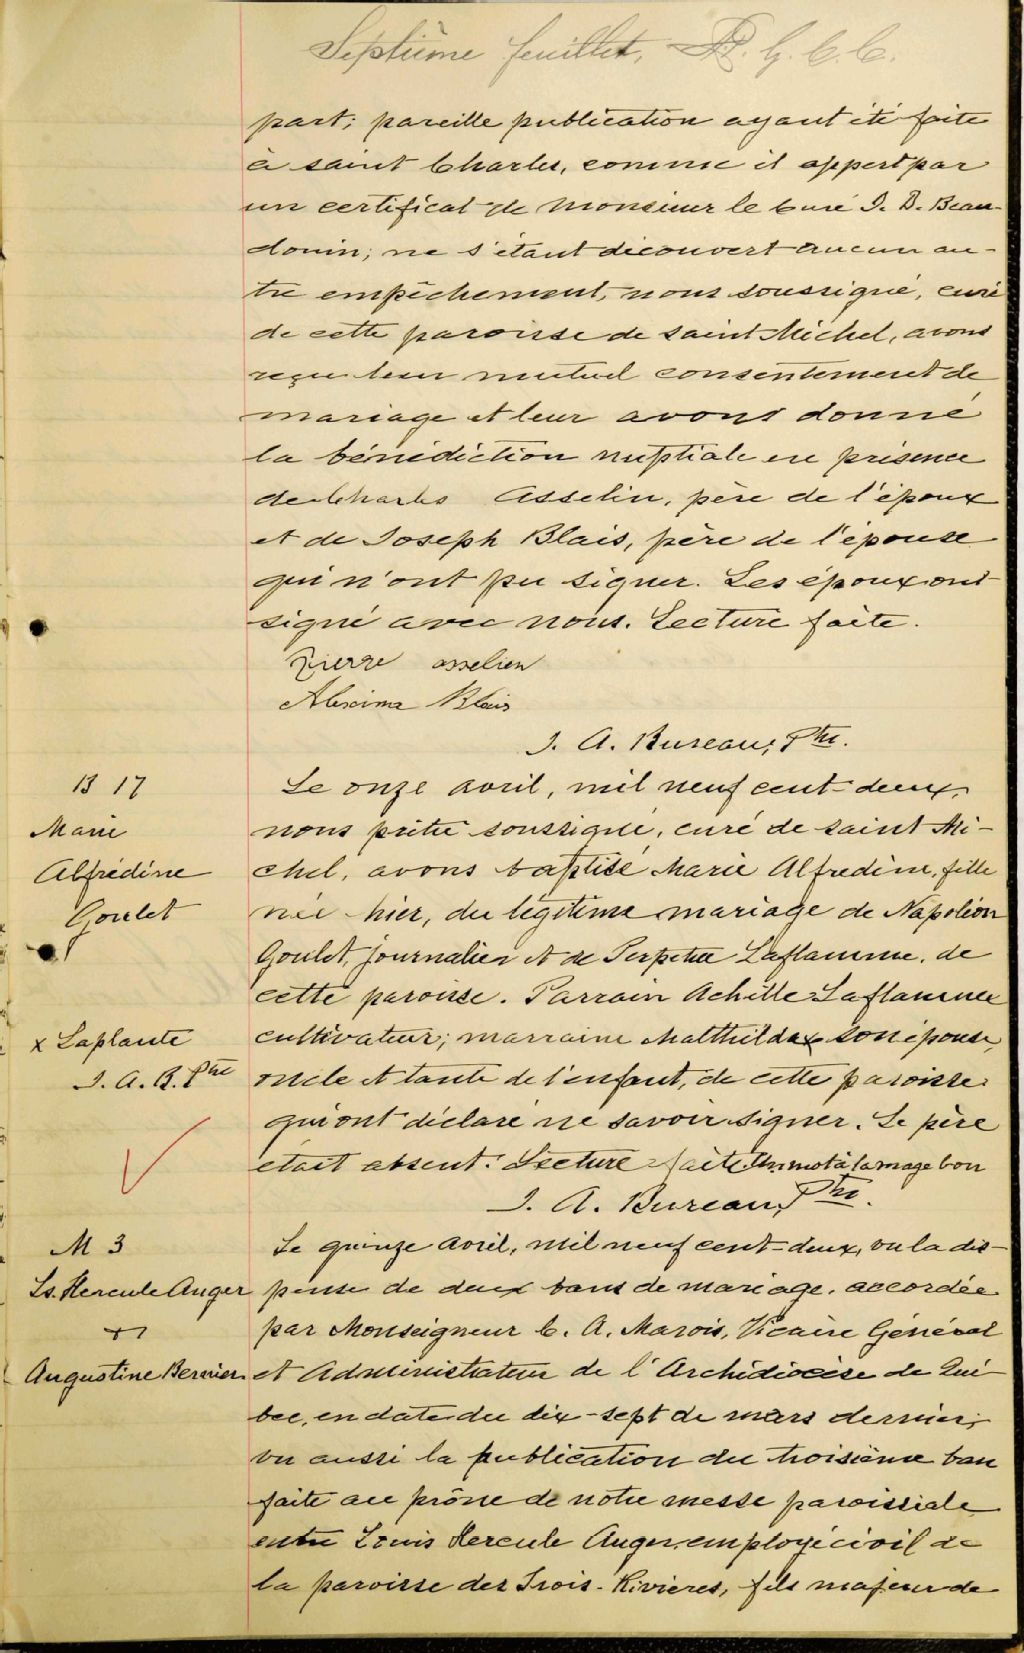 Septième feuillet, G. C. C.
part; pareille publication ayant été faite
à saint Charles, comme il appert par
un certificat de Monsieur le Curé J. D. Beau-
douin; ne s'étant découvert aucun au-
tre empêchement, nous soussigné, curé
de cette paroisse de saint Michel, avons
reçu leur mutuel consentement de
mariage et leur avons donné
la bénédiction nuptiale en présence
de Charles Asselin, père de l'époux
et de Joseph Blais, père de l'épouse
qui n'ont pu signer. Les époux ont
signé avec nous. Lecture faite.
Pierre asselien
Alexima Blais
J. A. Bureau, Ptre.
B 17
Marie
Alfrédine
Goulet
Le onze avril, mil neuf cent-deux,
nous prêtre soussigné, curé de saint Mi-
chel, avons baptisé Marie Alfredine, fille
née hier, du légitime mariage de Napoléon
Goulet, journalier et de Perpétue Laflamme, de
cette paroisse. Parrain Achille Laflamme x
cultivateur; marraine Malthilda x son épouse,
oncle et tante de l'enfant, de cette paroisse
qui ont déclaré ne savoir signer. Le père
était absent. Lecture faite. Un mot à la marge bon
x Laplante
J. A. B. Ptre
J. A. Bureau, Ptre.
M 3
Ls. Hercule Auger
et
Augustine Bernier
Le quinze avril, mil neuf cent-deux, vu la dis-
pense de deux bans de mariage, accordée
par Monseigneur C. A. Marois, Vicaire Général
et Administrateur de l'Archidiocèse de Qué-
bec, en date du dix-sept de mars dernier;
vu aussi la publication du troisième ban
faite au prône de notre messe paroissiale
entre Louis Hercule Auger, employé civil de
la paroisse des Trois-Rivières, fils majeur de